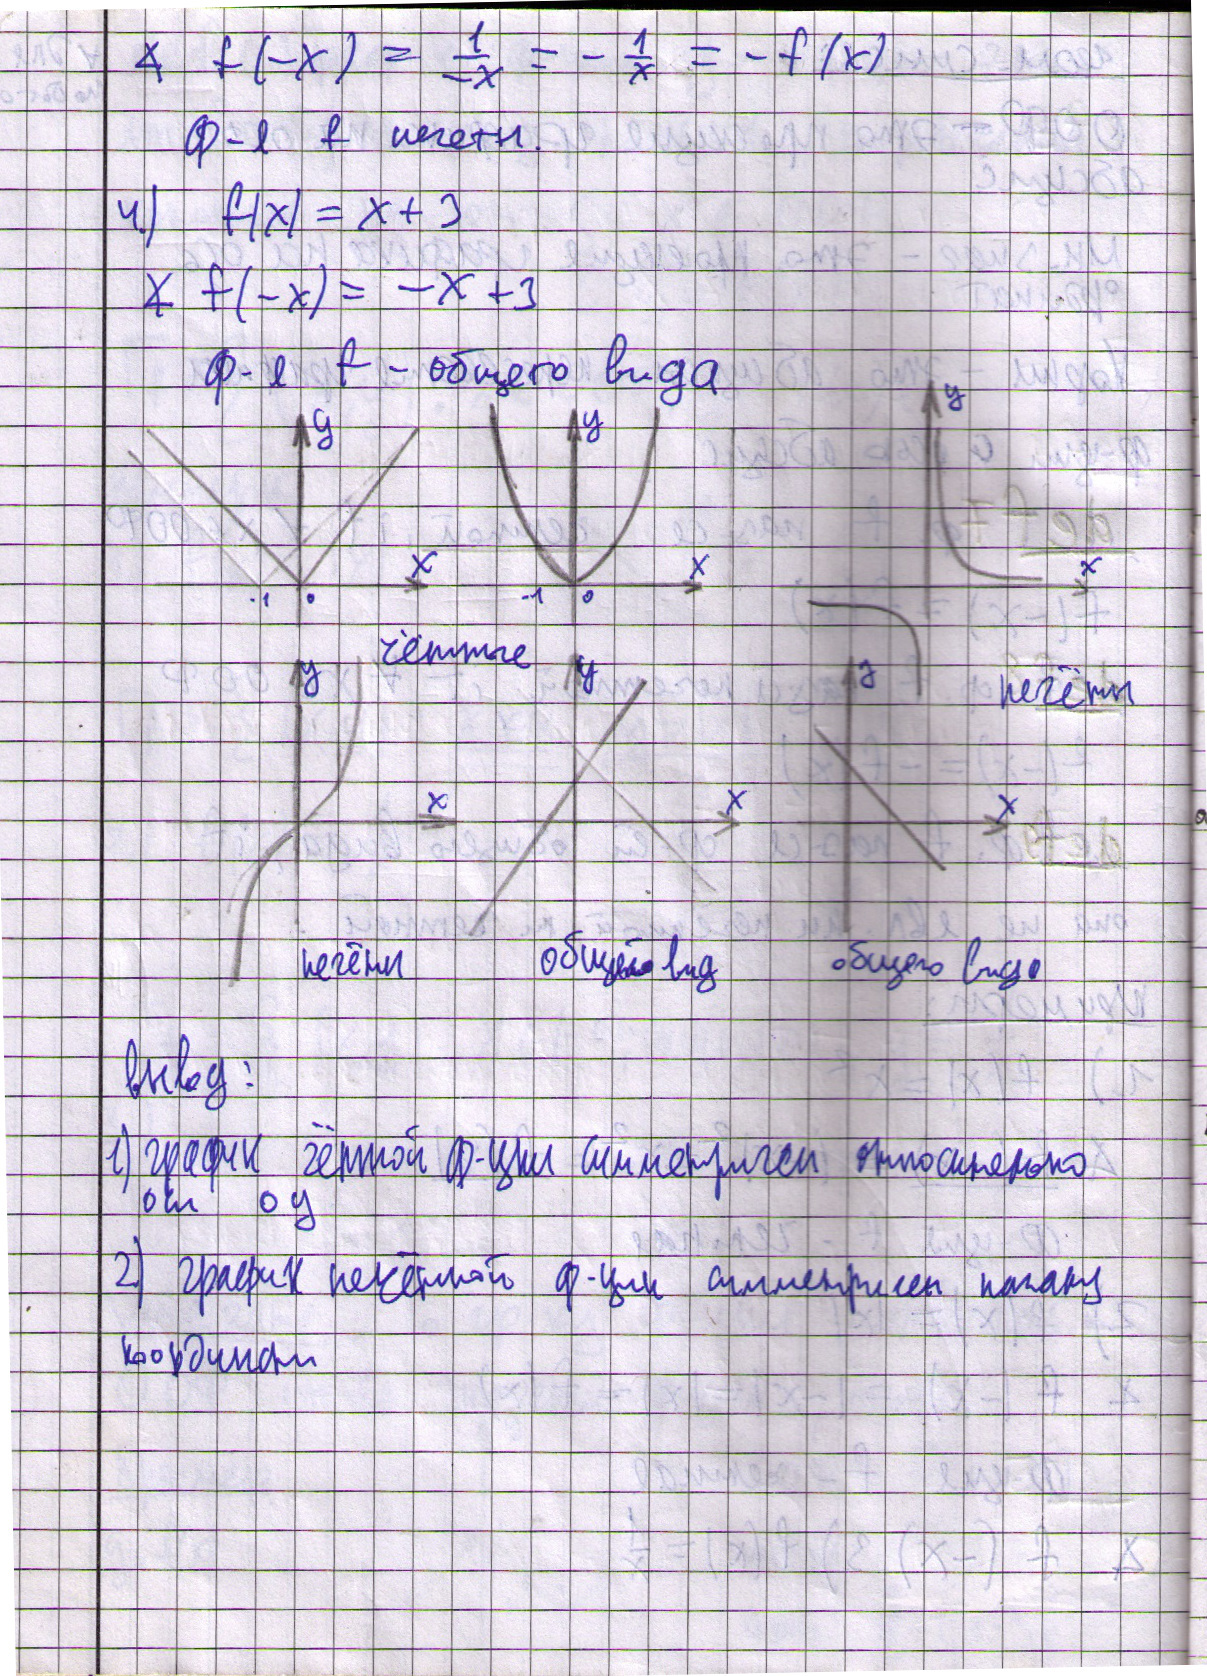 ∡ f(-x) = 1/-x = - 1/x = -f(x)
ф-я f нечетн.
4) f(x) = x+3
∡ f(-x) = -x+3
ф-я f - общего вида
y y y
x x x
-1 0 -1 0
чётные
нечётн
y y y
x x x
нечётн общего вид общего вида
вывод:
1) график чётной ф-ции симметричен относительно
оси оу
2) график нечётной ф-ции симметричен началу
координат